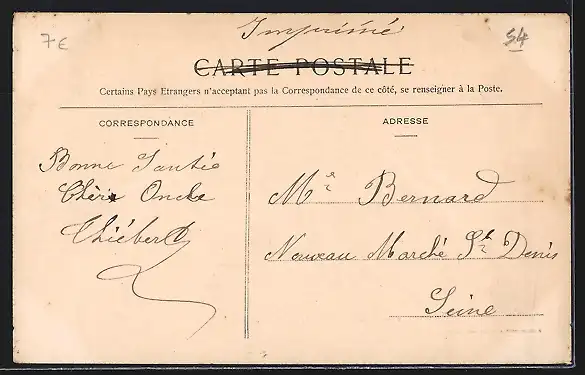 Imprimé
7€
54
CARTE POSTALE
Certains Pays Etrangers n'acceptant pas la Correspondance de ce côté, se renseigner à la Poste.
CORRESPONDANCE
Bonne Santée
Chèr Oncle
Thiébert
ADRESSE
Mr Bernard
Nouveau Marché St Denis
Seine